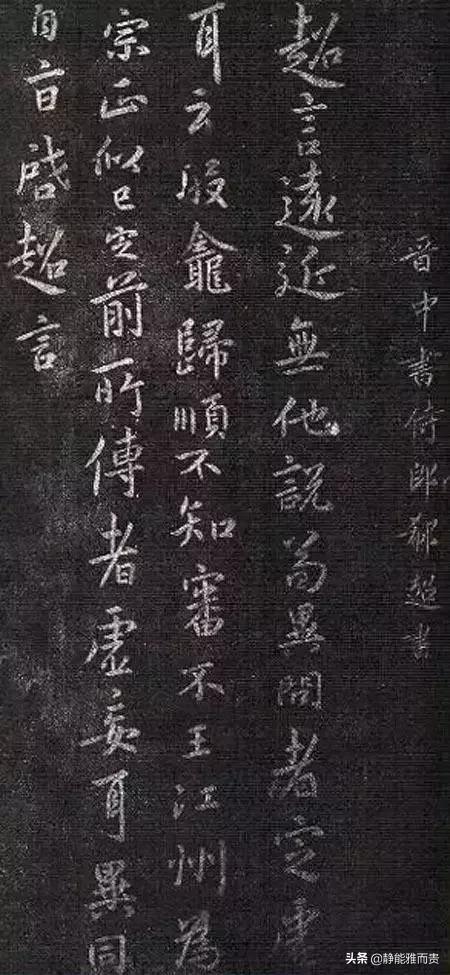 晉中書侍郎郗超書
超言遠近無他說苟異問者定虛
耳云殷龕歸順不知審不王江州為
宗正似已定前所傳者虛妄耳異同
自啟超言
頭条 @静能雅而贵